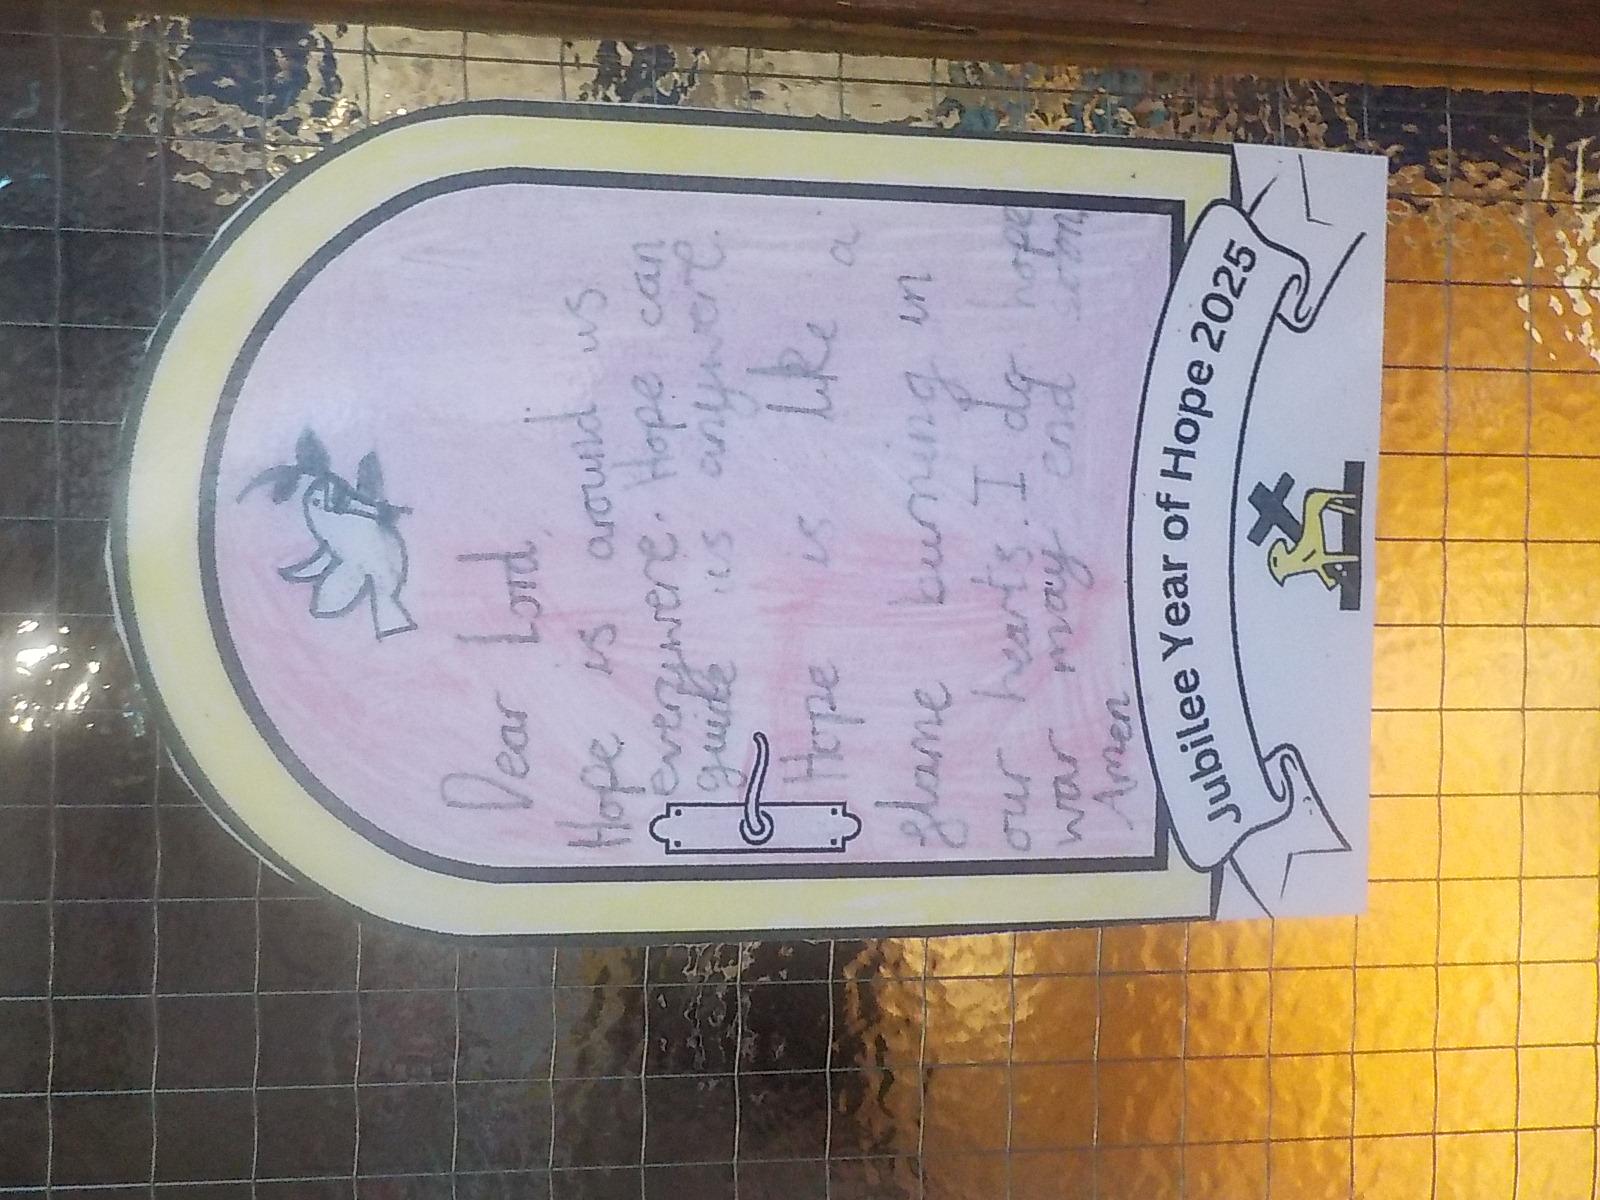 Dear Lord,
Hope is around us
everywere. Hope can
guide is anywere.
Hope is like a
flame burning in
our hearts. I do hope
war may end soon,
Amen
Jubilee Year of Hope 2025